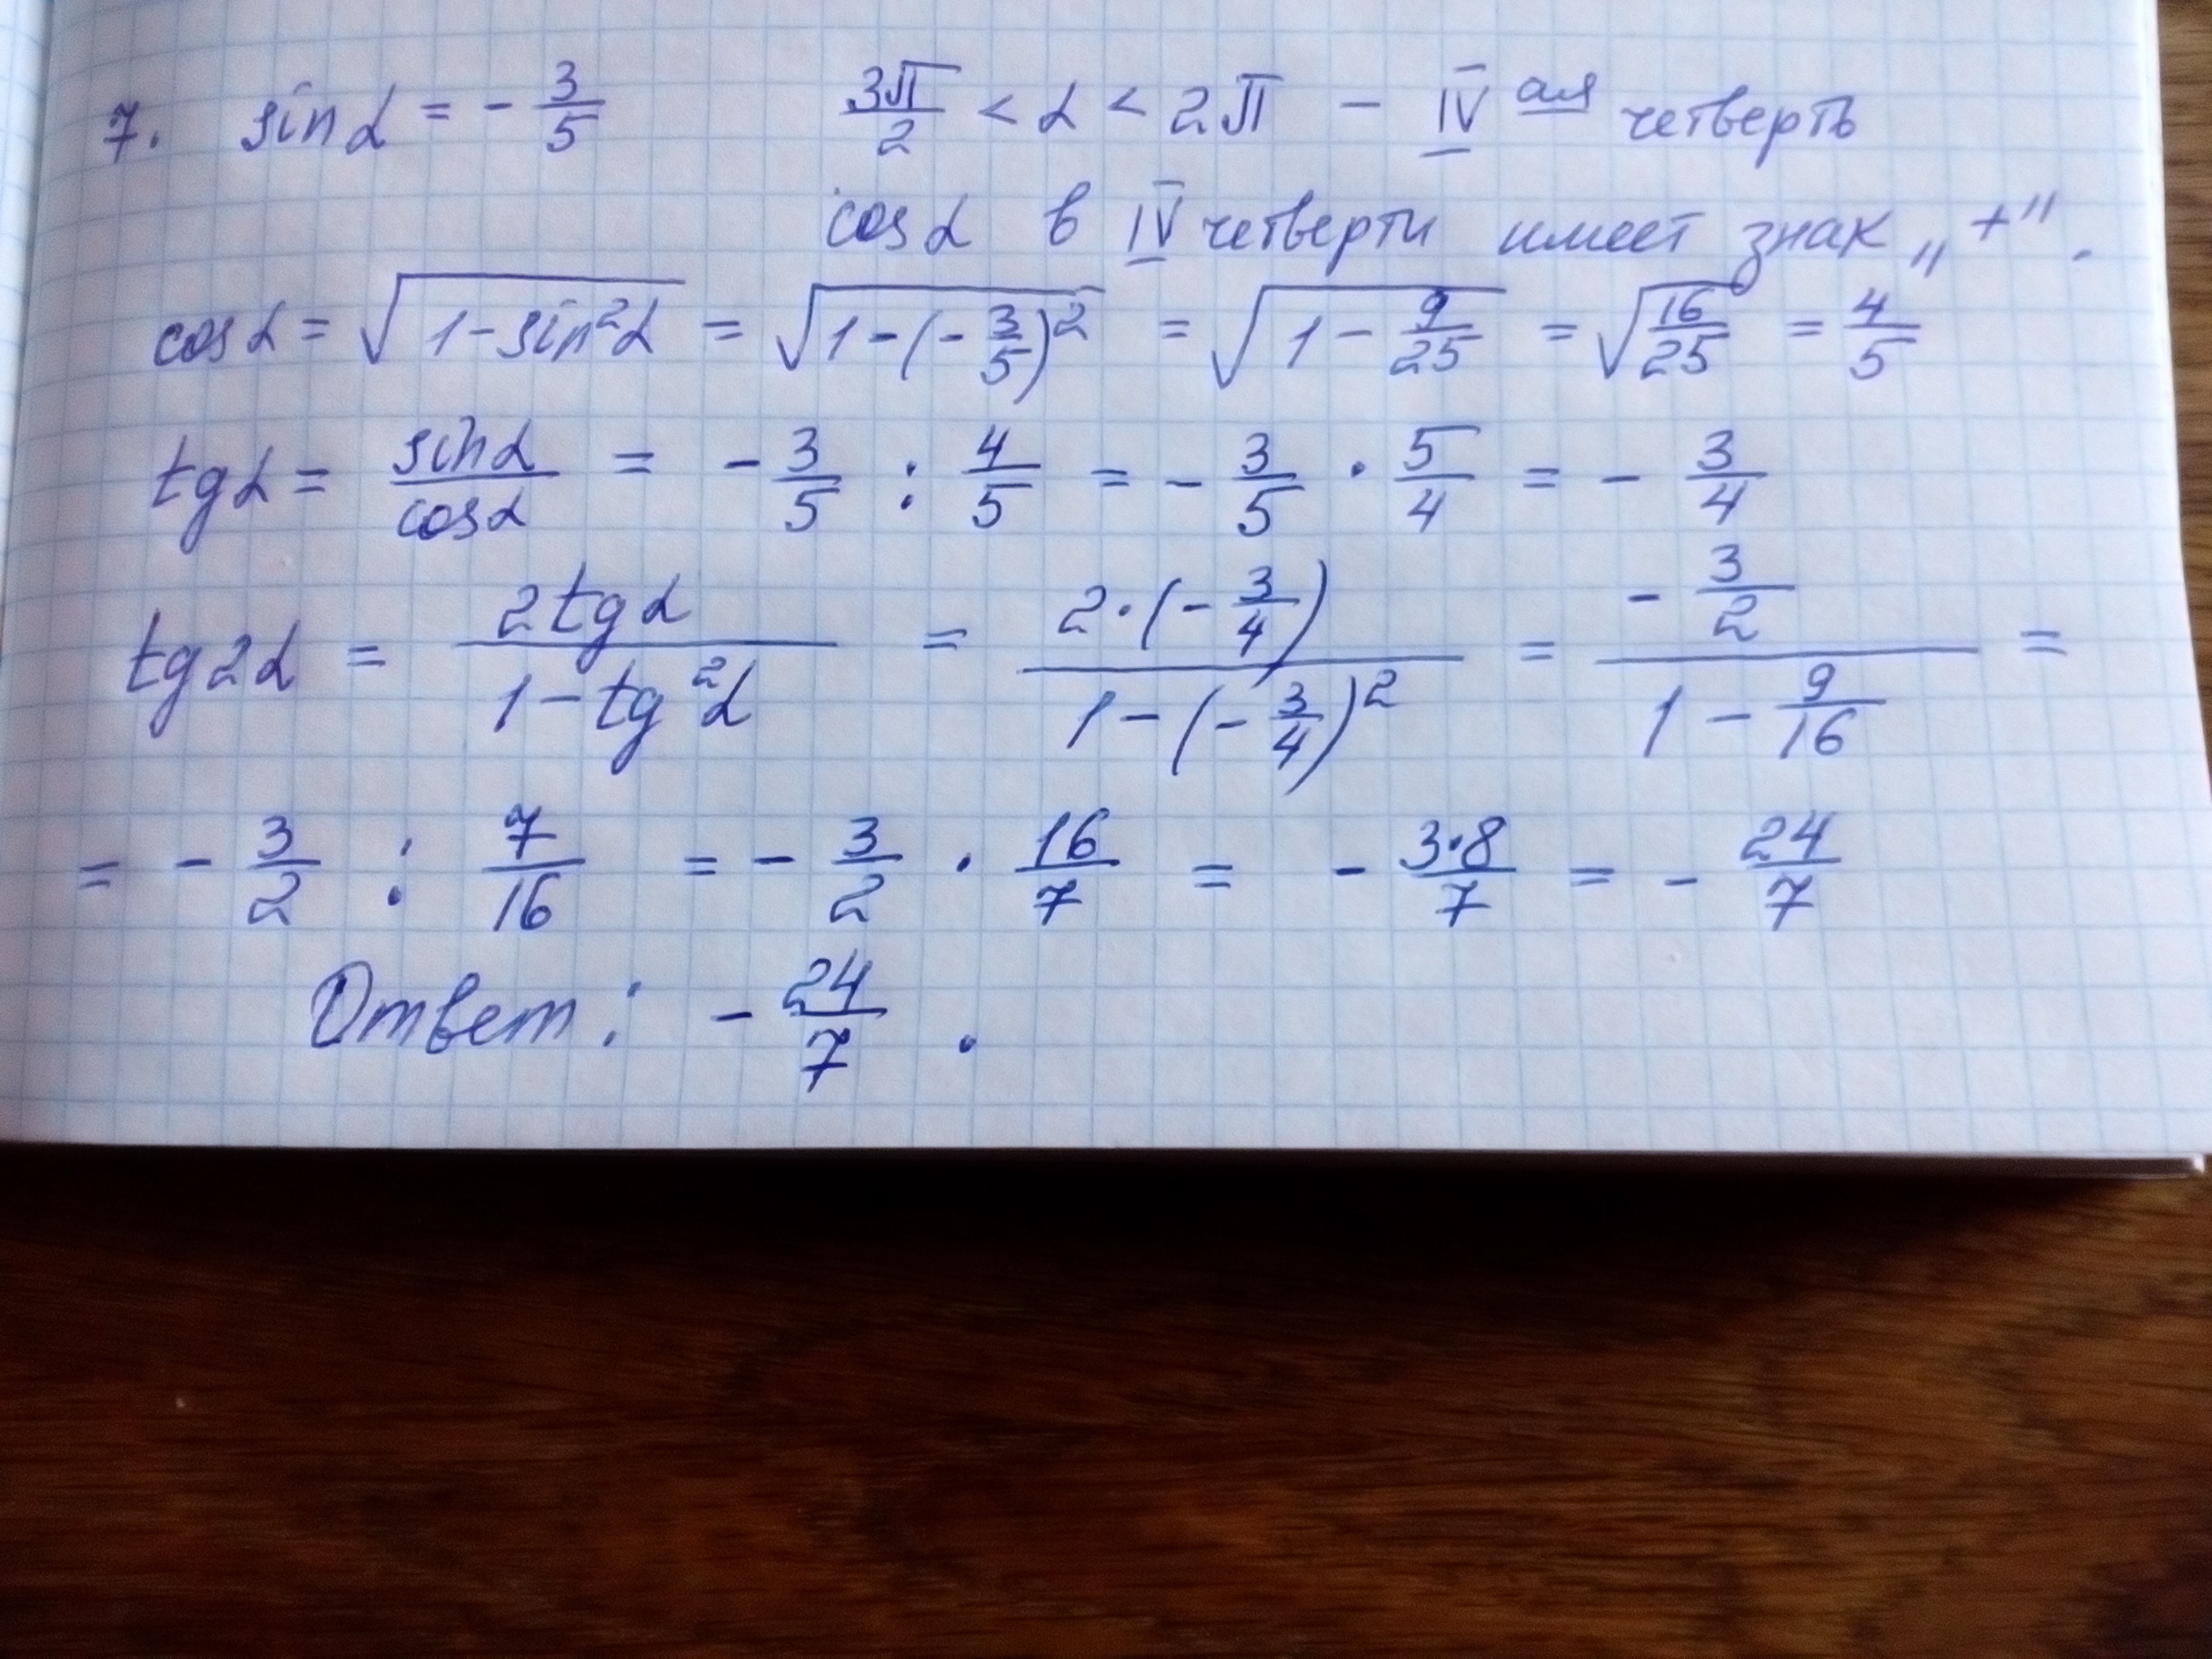 7. sin α = - 3/5     3π/2 < α < 2π - IV ая четверть
cos α в IV четверти имеет знак „+".
cos α = √(1 - sin²α) = √(1 - (- 3/5)²) = √(1 - 9/25) = √(16/25) = 4/5
tg α = sin α / cos α = - 3/5 : 4/5 = - 3/5 · 5/4 = - 3/4
tg 2α = 2 tg α / (1 - tg²α) = 2·(- 3/4) / (1 - (- 3/4)²) = (- 3/2) / (1 - 9/16) =
= - 3/2 : 7/16 = - 3/2 · 16/7 = - 3·8/7 = - 24/7
Ответ: - 24/7 .